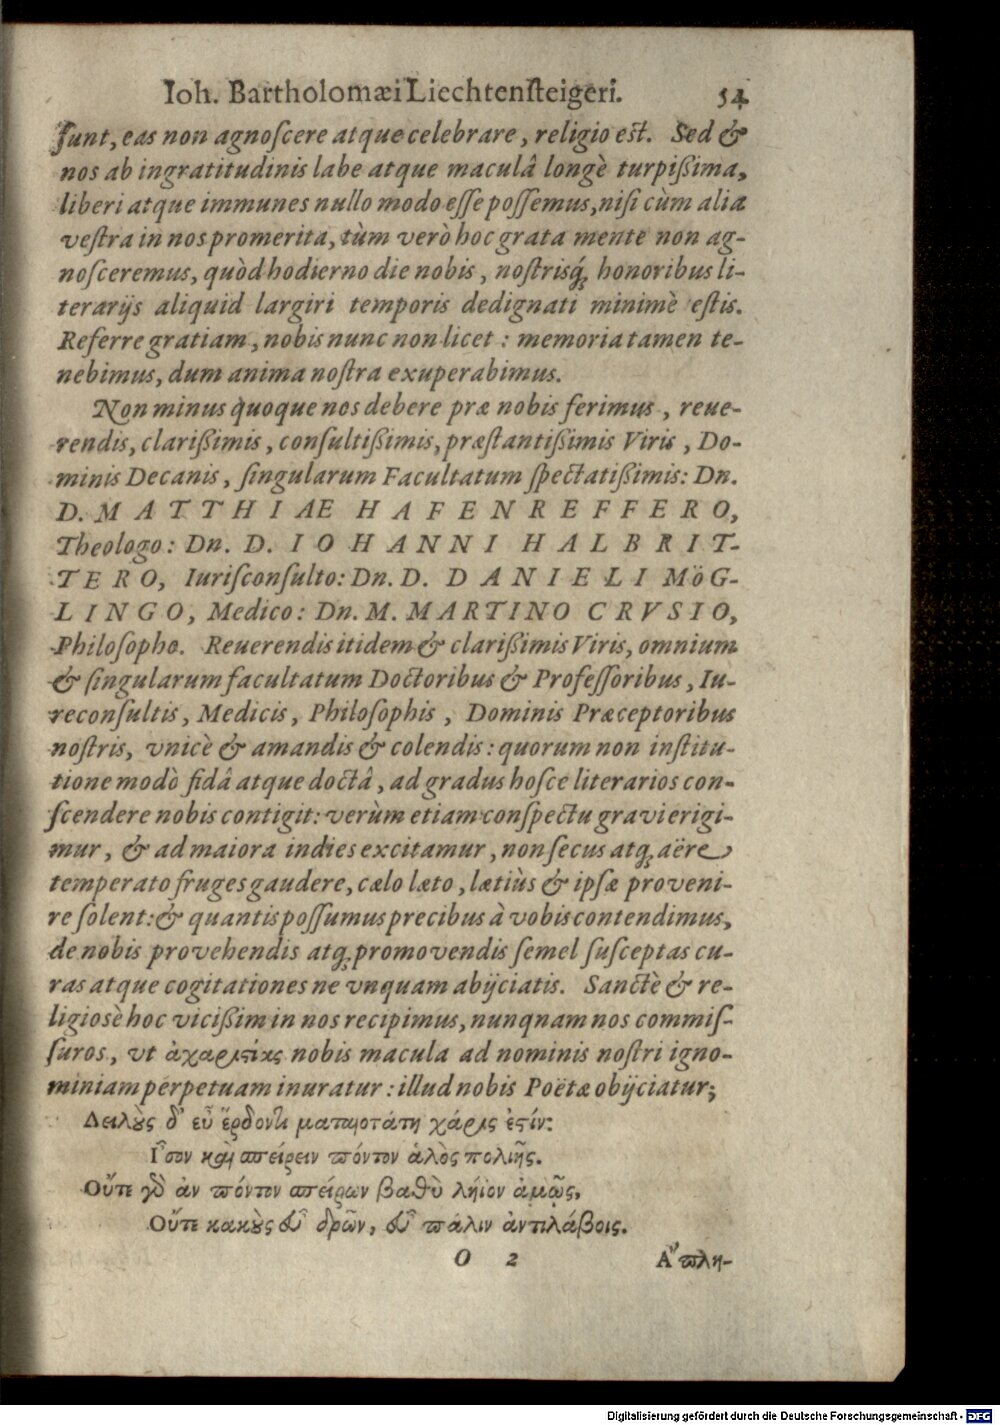 Ioh. Bartholomæi Liechtenſteigeri. 54
ſunt, eas non agnoſcere atque celebrare, religio est. Sed &
nos ab ingratitudinis labe atque maculâ longè turpißima,
liberi atque immunes nullo modo eſſe poſſemus, niſi cùm alia
veſtra in nos promerita, tùm verò hoc grata mente non ag-
noſceremus, quòd hodierno die nobis, noſtrisq́; honoribus li-
terarijs aliquid largiri temporis dedignati minimè eſtis.
Referre gratiam, nobis nunc non licet: memoria tamen te-
nebimus, dum anima noſtra exuperabimus.
Non minus quoque nos debere præ nobis ferimus, reue-
rendis, clarißimis, conſultißimis, præſtantißimis Viris, Do-
minis Decanis, ſingularum Facultatum ſpectatißimis: Dn.
D. MATTHIÆ HAFENREFFERO,
Theologo: Dn. D. IOHANNI HALBRIT-
TERO, Iuriſconſulto: Dn. D. DANIELI MöG-
LINGO, Medico: Dn. M. MARTINO CRVSIO,
Philoſopho. Reuerendis itidem & clarißimis Viris, omnium
& ſingularum facultatum Doctoribus & Profeſſoribus, Iu-
reconſultis, Medicis, Philoſophis, Dominis Præceptoribus
noſtris, vnicè & amandis & colendis: quorum non inſtitu-
tione modò fidâ atque doctâ, ad gradus hoſce literarios con-
ſcendere nobis contigit: verùm etiam conſpectu gravi erigi-
mur, & ad maiora indies excitamur, non ſecus atq; aëre
temperato fruges gaudere, cælo læto, lætiùs & ipſæ proveni-
re ſolent: & quantis poſſumus precibus à vobis contendimus,
de nobis provehendis atq; promovendis ſemel ſuſceptas cu-
ras atque cogitationes ne vnquam abijciatis. Sanctè & re-
ligiosè hoc vicißim in nos recipimus, nunqnam nos commiſ-
ſuros, vt ἀχαριστίας nobis macula ad nominis noſtri igno-
miniam perpetuam inuratur: illud nobis Poëtæ obijciatur;
Δειλοὺς δ' εὖ ἔρδοντι ματαιοτάτη χάρις ἐστίν:
Ἶσον καὶ σπείρειν πόντον ἁλὸς πολιῆς.
Οὔτε γὸ ἀν πόντον σπείρων βαθὺ λήϊον ἀμῷς,
Οὔτε κακοὺς εὖ δρῶν, εὖ πάλιν ἀντιλάβοις.
O 2 Ἄπλη-